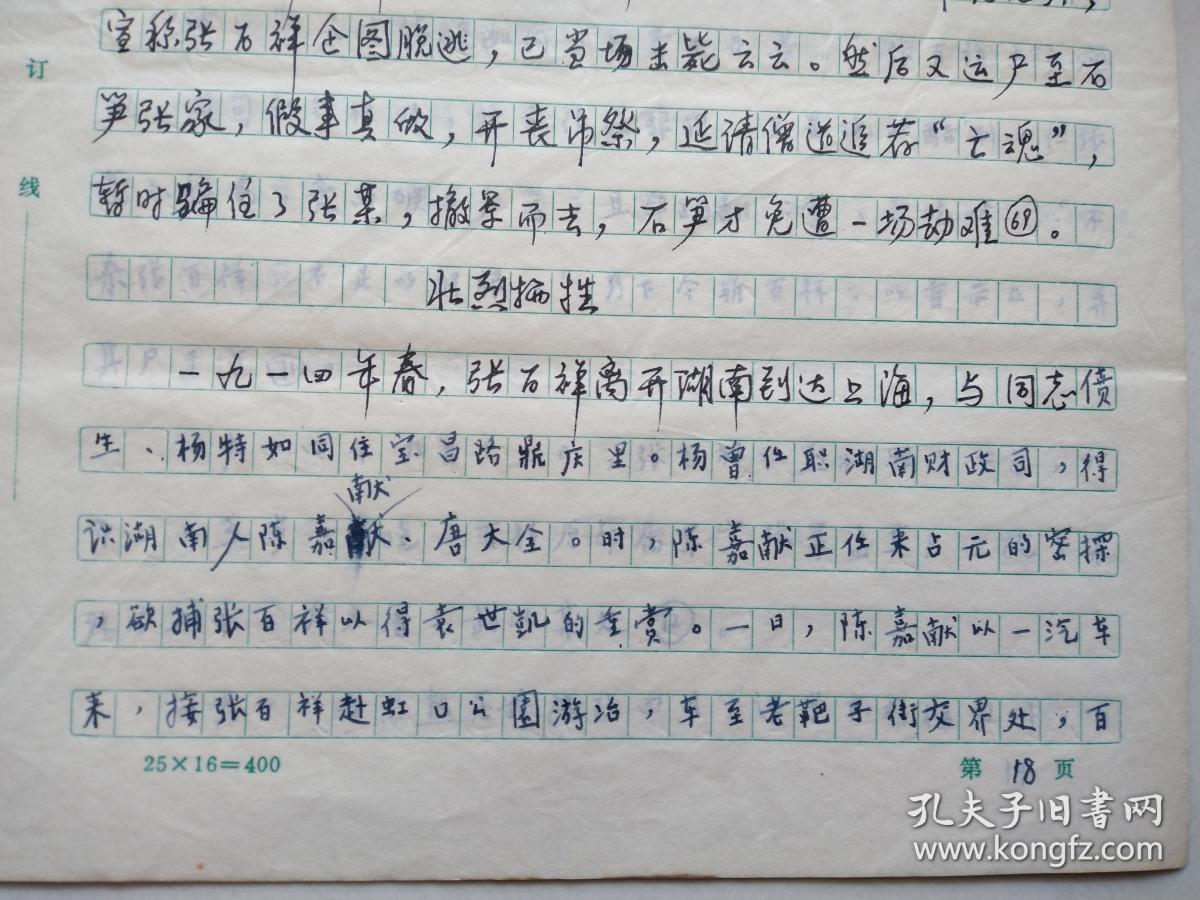 宣称张百祥企图脱逃，已当场击毙云云。然后又运尸至石
订
笋张家，假事真做，开丧吊祭，延请僧道追荐“亡魂”，
线
暂时骗住了张某，撤军而去，石笋才免遭一场劫难㊿。
壮烈牺牲
一九一四年春，张百祥离开湖南到达上海，与同志偾
生、杨特如同住宝昌路鼎庆里。杨曾任职湖南财政司，得
献
识湖南人陈嘉献、唐大全。时，陈嘉献正任朱占元的密探
，欲捕张百祥以得袁世凯的重赏。一日，陈嘉献以一汽车
来，接张百祥赴虹口公园游冶，车至老靶子街交界处，百
25×16=400
第 18 页
孔夫子旧书网
www.kongfz.com